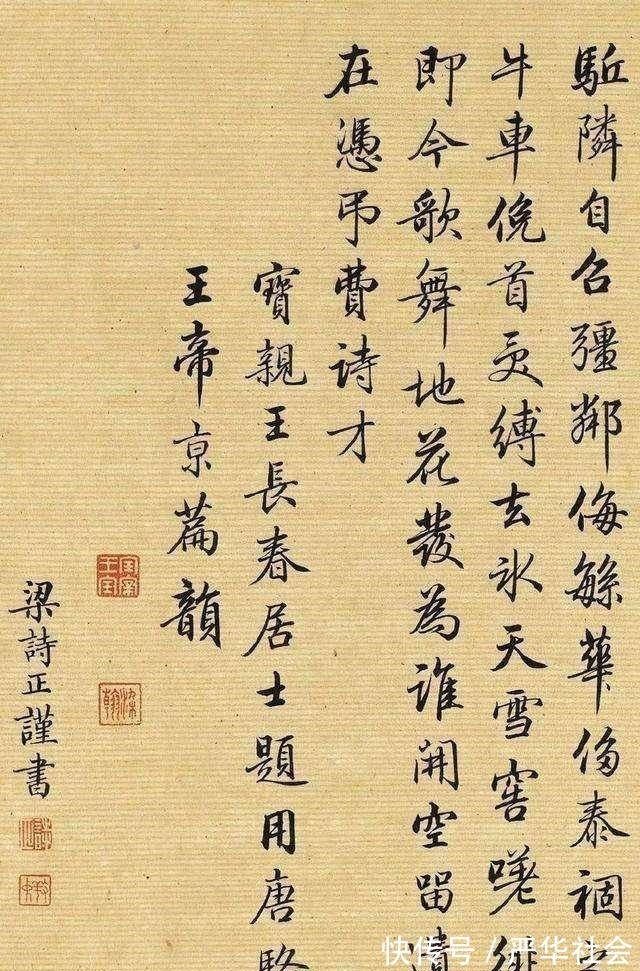 駈隣自召彊鄰侮緐華侈泰禍
牛車俛首受縛去氷天雪窖嗟
即今歌舞地花發為誰開空留遺
在憑弔費詩才
寶親王長春居士題用唐駱
王帝京篇韻
梁詩正謹書
快传号 / 严华社会